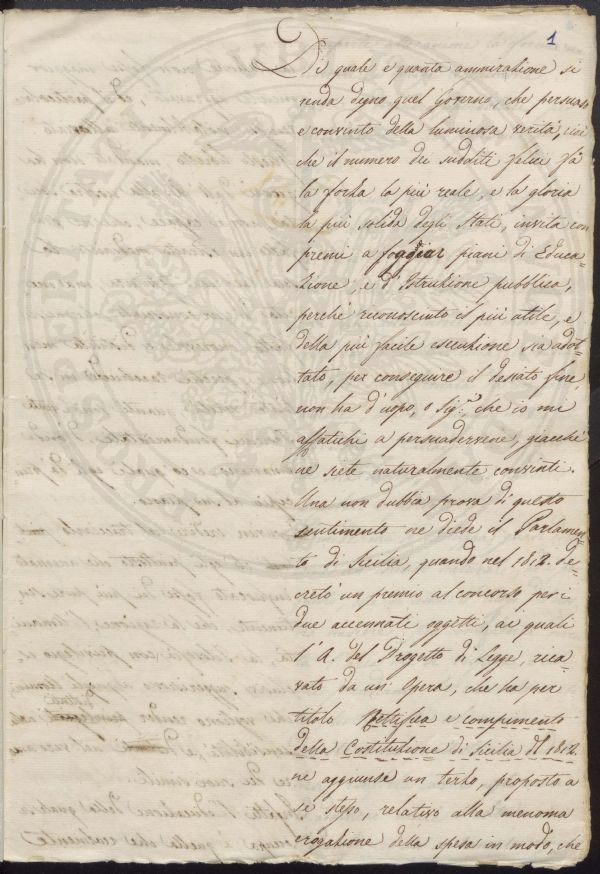 1
Di quale e quanta ammirazione si
renda degno quel Governo, che persuaso
e convinto della luminosa verità, cioè
che il numero dei sudditi felici fà
la forza la più reale, e la gloria
la più solida degli Stati, invita con
premi a foggiar piani di Educa-
zione, e d'Istruzione pubblica,
perché riconosciuto il più utile, e
della più facile esecuzione sia adot-
tato, per conseguire il desiato fine
non ha d'uopo, o Sig.ri che io mi
affatichi a persuadervene, giacché
ne siete naturalmente convinti.
Una non dubbia prova di questo
sentimento ne diede il Parlamen-
to di Sicilia, quando nel 1812. de-
cretò un premio al concorso per i
due accennati oggetti, ai quali
l'A. del Progetto di Legge, rica-
vato da un' Opera, che ha per
titolo Rettifica e compimento
della Costituzione di Sicilia del 1812.
ne aggiunse un terzo, proposto a
se stesso, relativo alla menoma
erogazione della spesa in modo, che